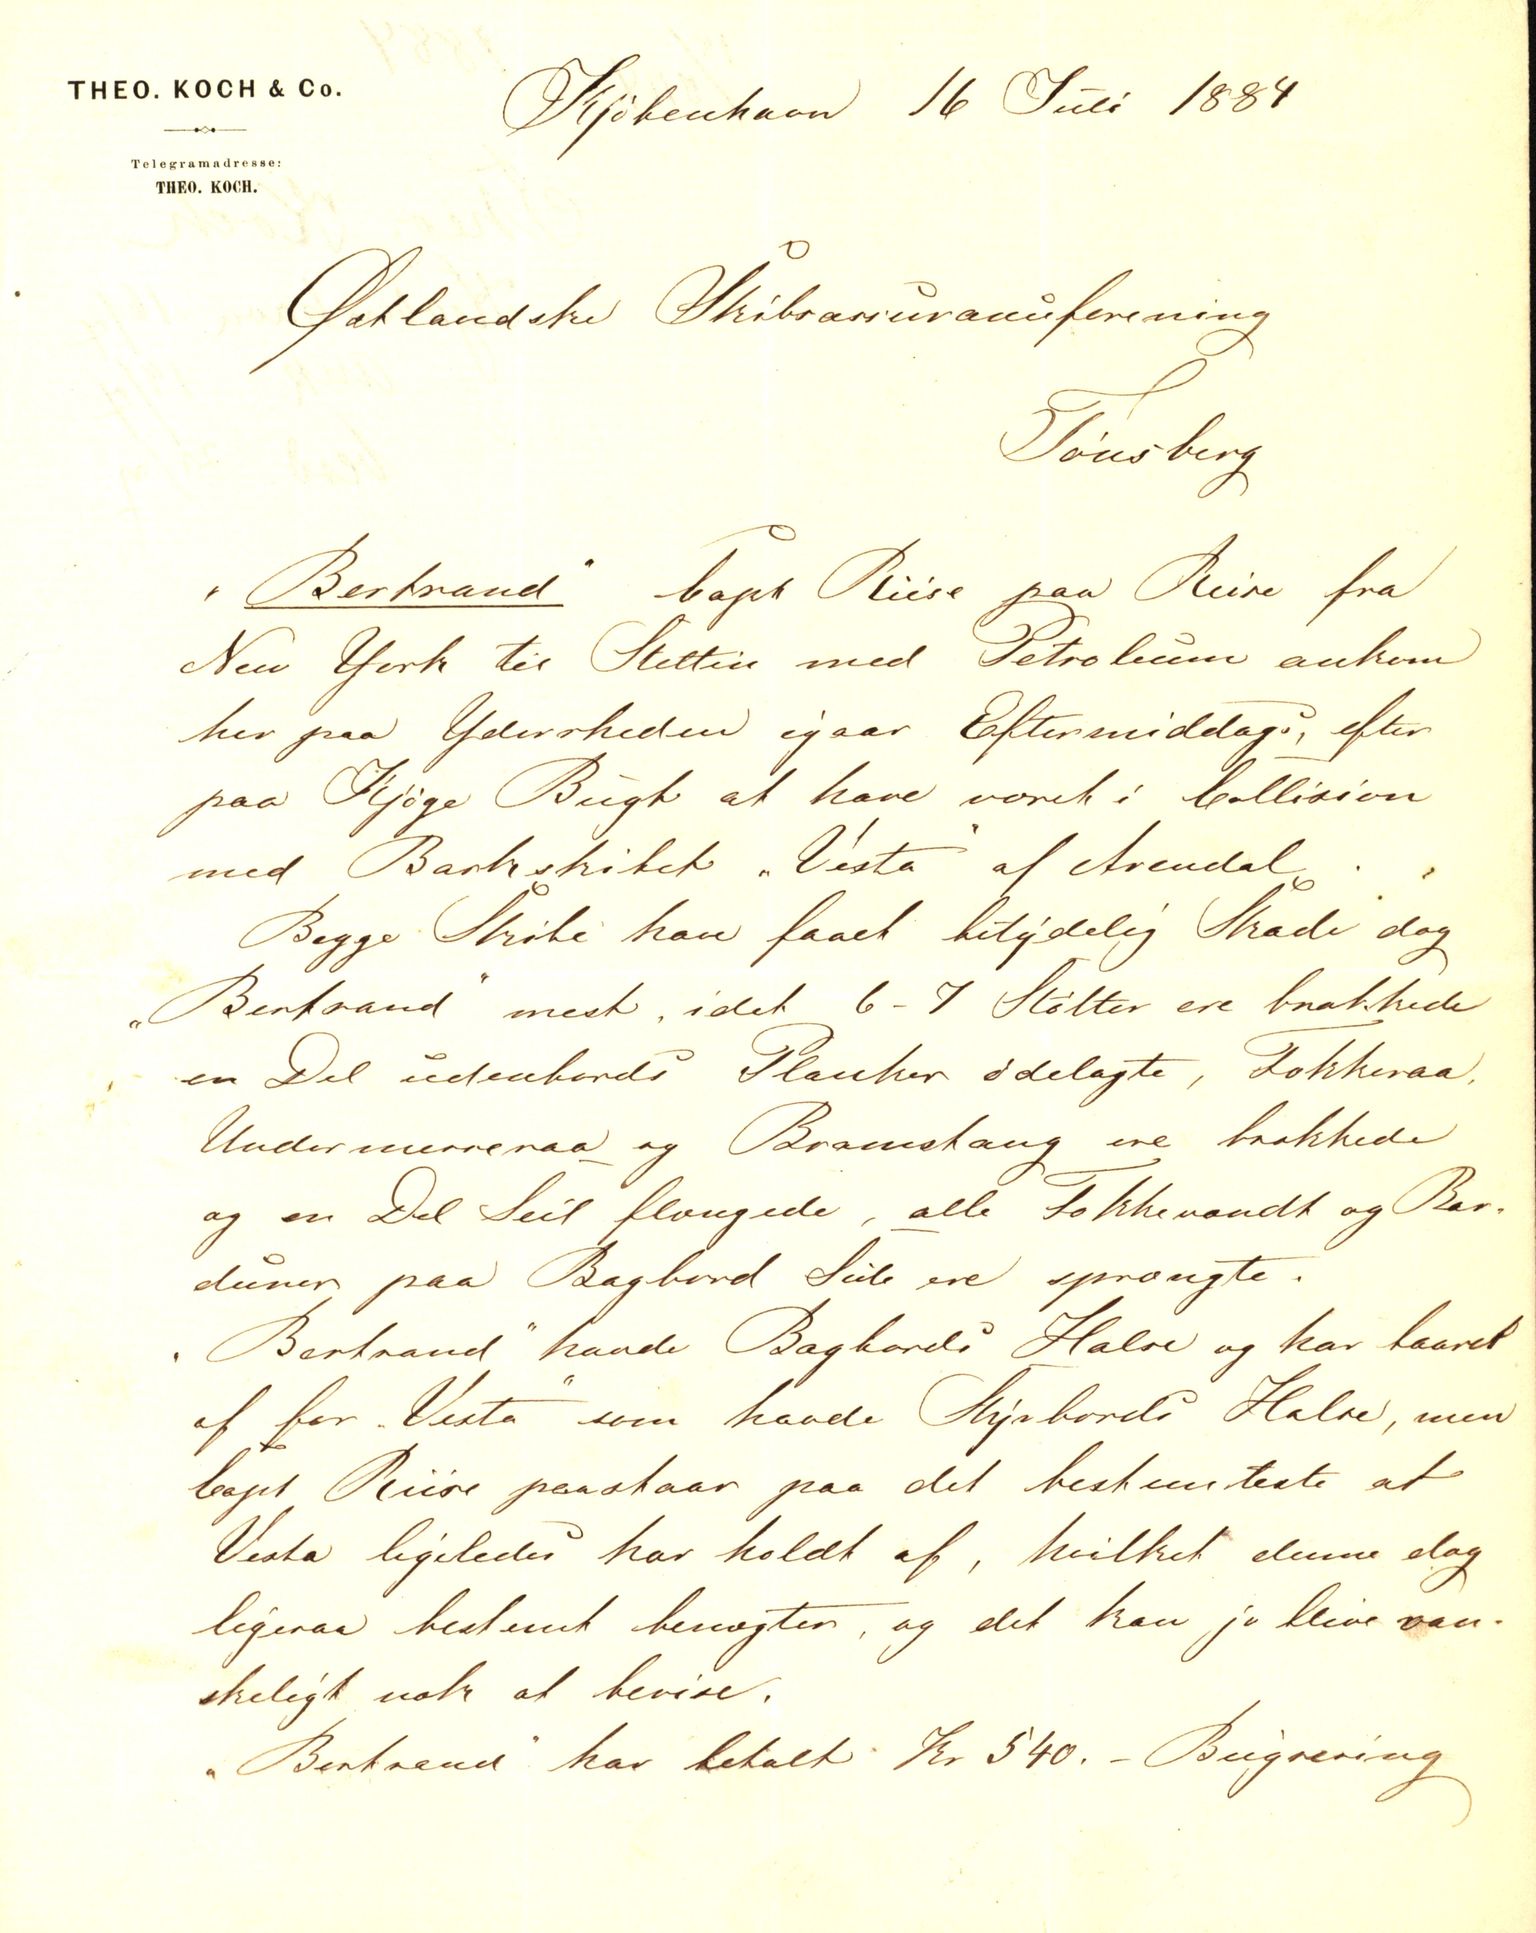 THEO. KOCH & Co.
Telegramadresse:
THEO. KOCH.
Kjöbenhavn 16 Juli 1884
Østlandske Skibsassuranceforening
Tönsberg
„Bertrand" Capt Riise paa Reise fra
New York til Stettin med Petroleum ankom
her paa Yderrheden igaar Eftermiddags, efter
paa Kjöge Bugt at have været i Collision
med Barkskibet „Vesta" af Arendal.
Begge Skibe have faaet betydelig Skade dog
„Bertrand" mest, idet 6-7 Stötter ere brækkede
en Del udenbords Planker ödelagte, Fokkeraa,
Undermerseraa og Bramstang ere brækkede
og en Del Seil flængede, alle Fokkevandt og Bar-
duner paa Bagbord Side ere sprængte.
„Bertrand" havde Bagbords Halse og har baaret
af for „Vesta" som havde Styrbords Halse, men
Capt Riise paastaar paa det bestemteste at
Vesta ligeledes har holdt af, hvilket denne dog
ligesaa bestemt benægter, og det kan jo blive van-
skeligt nok at bevise.
„Bertrand" har betalt Kr 540.- Bugsering